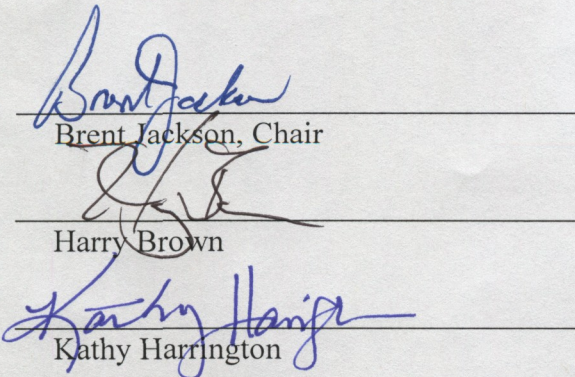 Brent Jackson
Brent Jackson, Chair
Harry Brown
Kathy Harrington
Kathy Harrington